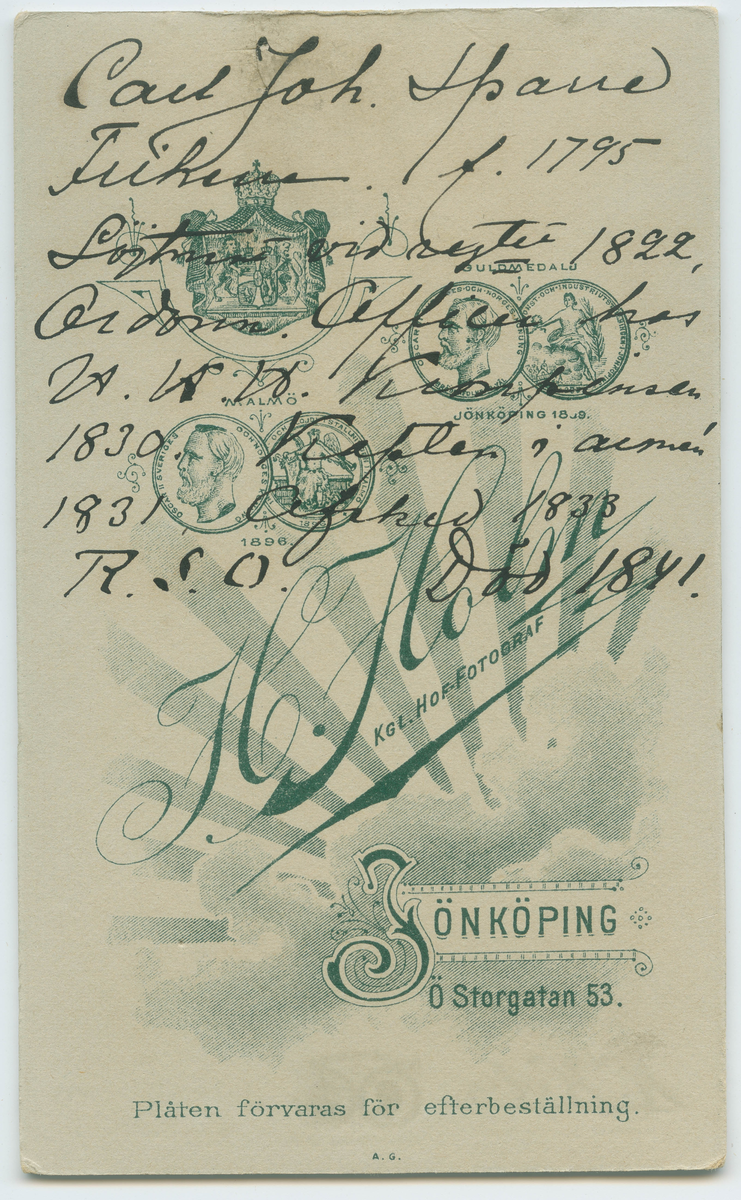 Carl Joh. Sparre
Friherre. f. 1795
Löjtnant vid regtet 1822,
Ordonn. Officer hos
H. K. H. Kronprinsen
1830. Kapten i armén
1831. Afsked 1833
R. S. O. Död 1841.
GULDMEDALJ
JÖNKÖPING
MALMÖ
1896.
H. Holm
KGL. HOF-FOTOGRAF
JÖNKÖPING
Ö Storgatan 53.
Plåten förvaras för efterbeställning.
A. G.